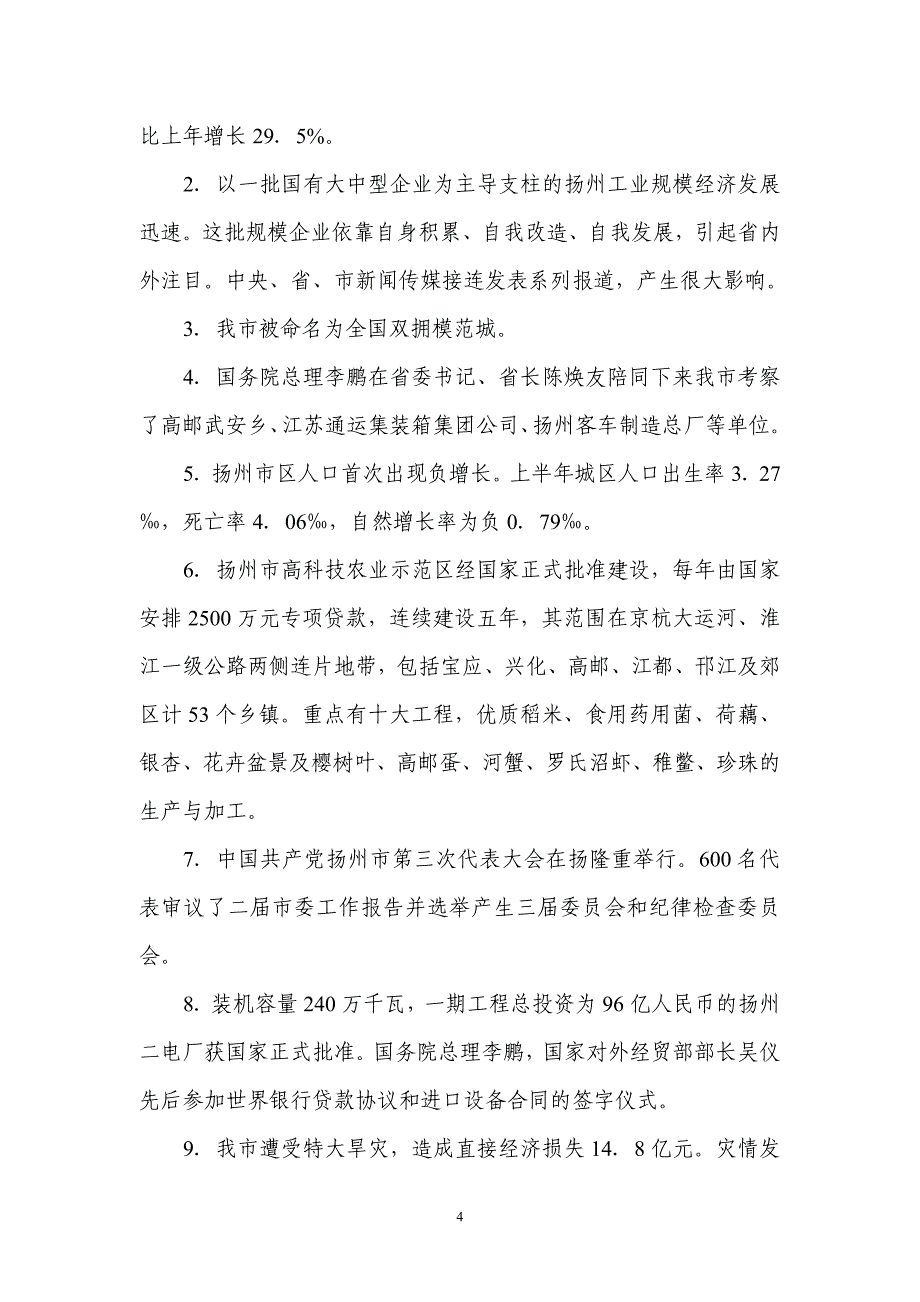 比上年增长 29．5%。
2．以一批国有大中型企业为主导支柱的扬州工业规模经济发展
迅速。这批规模企业依靠自身积累、自我改造、自我发展，引起省内
外注目。中央、省、市新闻传媒接连发表系列报道，产生很大影响。
3．我市被命名为全国双拥模范城。
4．国务院总理李鹏在省委书记、省长陈焕友陪同下来我市考察
了高邮武安乡、江苏通运集装箱集团公司、扬州客车制造总厂等单位。
5．扬州市区人口首次出现负增长。上半年城区人口出生率 3．27
‰，死亡率 4．06‰，自然增长率为负 0．79‰。
6．扬州市高科技农业示范区经国家正式批准建设，每年由国家
安排 2500 万元专项贷款，连续建设五年，其范围在京杭大运河、淮
江一级公路两侧连片地带，包括宝应、兴化、高邮、江都、邗江及郊
区计 53 个乡镇。重点有十大工程，优质稻米、食用药用菌、荷藕、
银杏、花卉盆景及樱树叶、高邮蛋、河蟹、罗氏沼虾、稚鳖、珍珠的
生产与加工。
7．中国共产党扬州市第三次代表大会在扬隆重举行。600 名代
表审议了二届市委工作报告并选举产生三届委员会和纪律检查委员
会。
8．装机容量 240 万千瓦，一期工程总投资为 96 亿人民币的扬州
二电厂获国家正式批准。国务院总理李鹏，国家对外经贸部部长吴仪
先后参加世界银行贷款协议和进口设备合同的签字仪式。
9．我市遭受特大旱灾，造成直接经济损失 14．8 亿元。灾情发
4